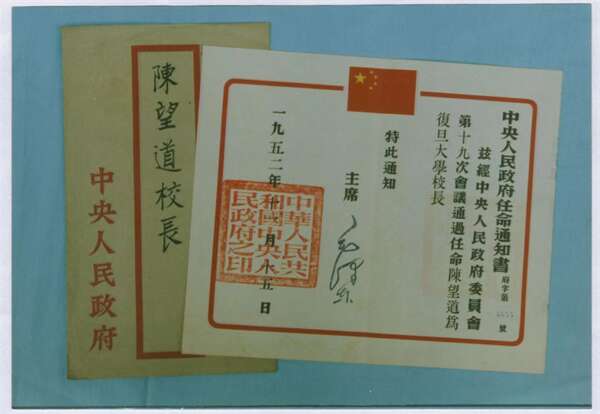 陳望道校長
中央人民政府
中央人民政府任命通知書 府字第 號
茲經中央人民政府委員會
第十九次會議通過任命陳望道為
復旦大學校長
特此通知
主席 毛澤東
一九五二年十一月十五日
中華人民共
和國中央人
民政府之印